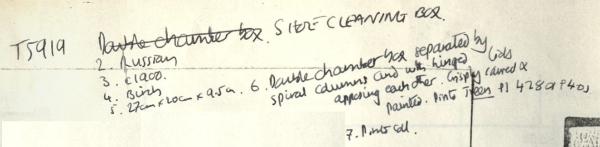 T5919 Double chamber box. SHOE CLEANING BOX.
2. Russian
3. c1900.
4. Birch
5. 27cm x 20cm x 9.5cm. 6. Double chamber box separated by
spiral columns and with hinged lids
opposing each other. Crisply carved &
painted. Pinto Treen Pl 428 a P405
7. Pinto Coll.